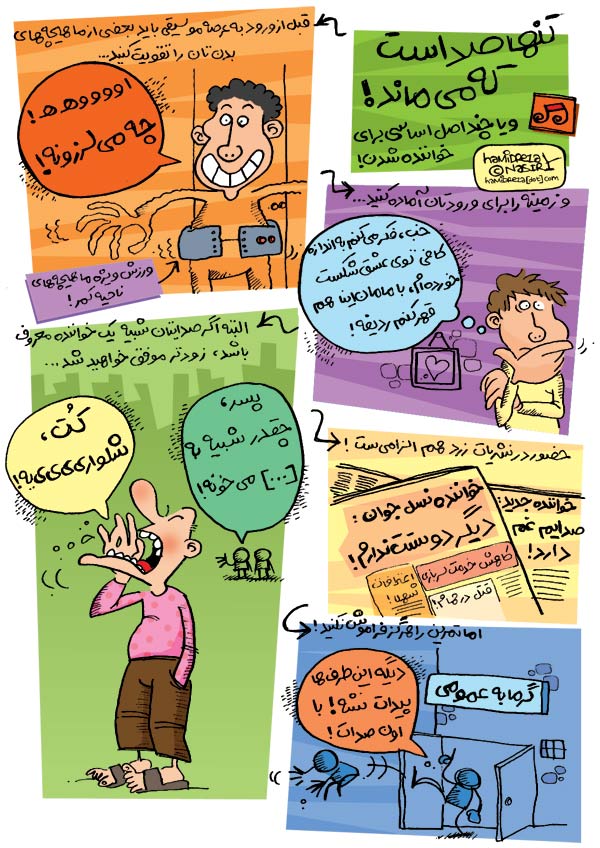 تنها صداست
که می‌ماند!
و یا چند اصل اساسی برای
خواننده شدن!
HAMIDREZA
© NASIRI
HAMIDREZA[DOT]COM
قبل از ورود به عرصه موسیقی باید بعضی از ماهیچه‌های
بدن‌تان را تقویت کنید...
اووووه‌ه‌!
چه می‌لرزونه!
ورزش ویژه ماهیچه‌های
ناحیه کمر!
و زمینه را برای ورودتان آماده کنید...
خب، فکر می‌کنم به اندازه
کافی توی عشق شکست
خورده‌ام، با مامان‌اینا هم
قهر کنم ردیفه!
البته اگر صدایتان شبیه یک خواننده معروف
باشد، زودتر موفق خواهید شد...
پسر،
چقدر شبیه به
[...] می‌خونه!
کُت،
شلواری‌ی‌ی‌ی‌یه!
حضور در نشریات زرد هم الزامی‌ست!
خواننده نسل جوان:
دیگر دوستت ندارم!
خواننده جدید:
صدایم غم
دارد!
کاهش خدمت سربازی
قتل در حمام!
اما تمرین را هرگز فراموش نکنید!
گرمابه عمومی
دیگه این طرف‌ها
پیدات نشه! با
اون صدات!